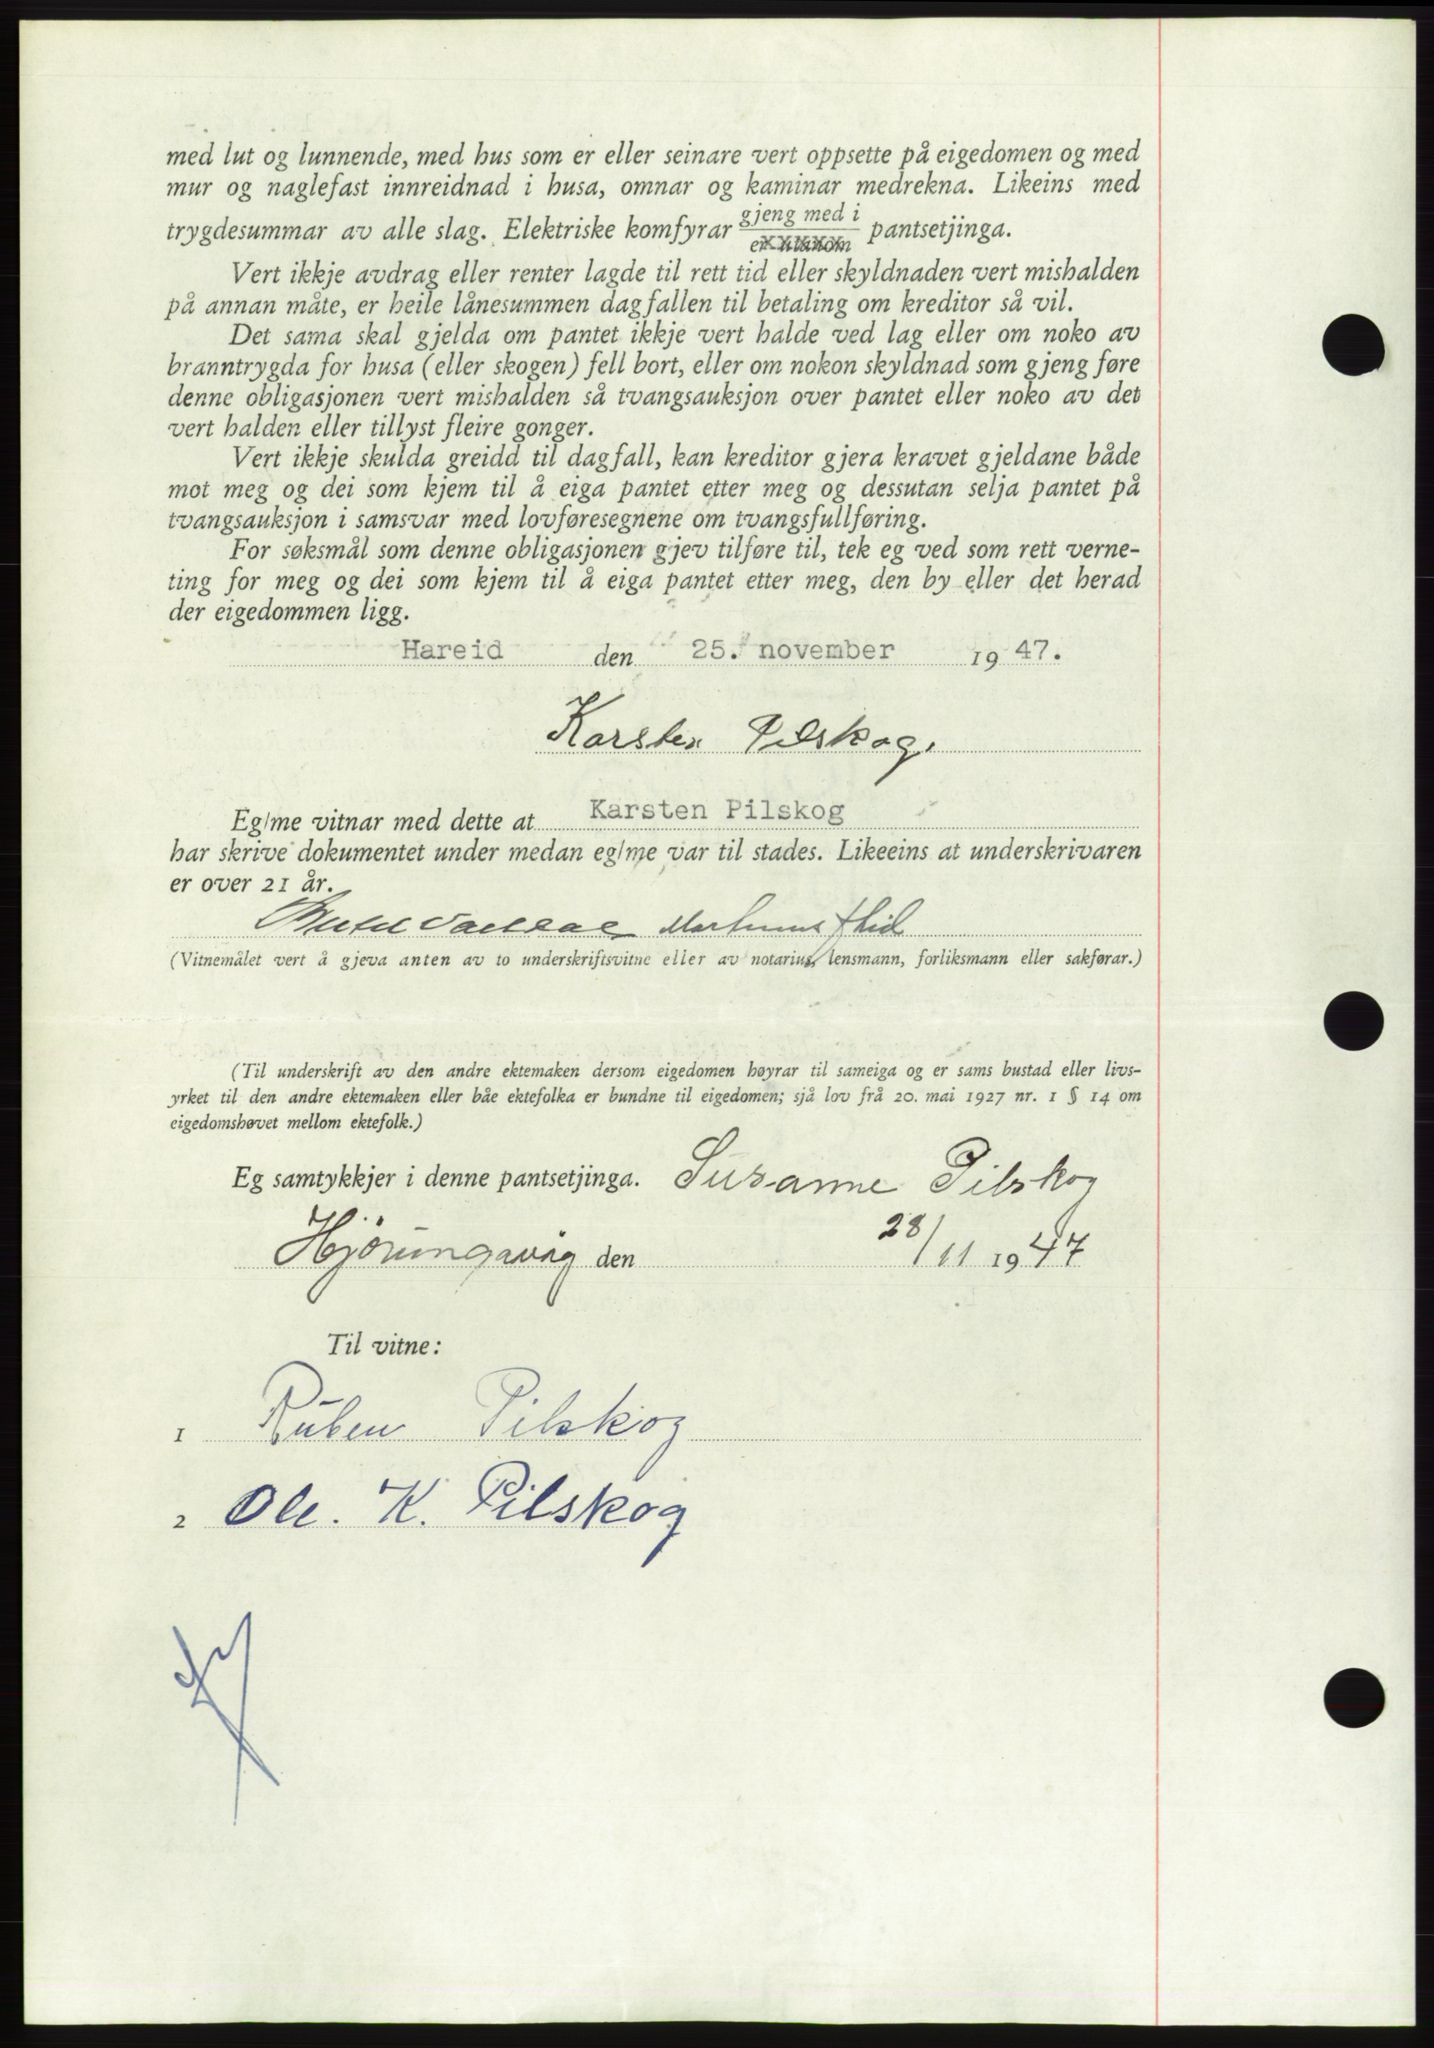 med lut og lunnende, med hus som er eller seinare vert oppsette på eigedomen og med
mur og naglefast innreidnad i husa, omnar og kaminar medrekna. Likeins med
trygdesummar av alle slag. Elektriske komfyrar gjeng med i / er utanom pantsetjinga.
Vert ikkje avdrag eller renter lagde til rett tid eller skyldnaden vert mishalden
på annan måte, er heile lånesummen dagfallen til betaling om kreditor så vil.
Det sama skal gjelda om pantet ikkje vert halde ved lag eller om noko av
branntrygda for husa (eller skogen) fell bort, eller om nokon skyldnad som gjeng føre
denne obligasjonen vert mishalden så tvangsauksjon over pantet eller noko av det
vert halden eller tillyst fleire gonger.
Vert ikkje skulda greidd til dagfall, kan kreditor gjera kravet gjeldane både
mot meg og dei som kjem til å eiga pantet etter meg og dessutan selja pantet på
tvangsauksjon i samsvar med lovføresegnene om tvangsfullføring.
For søksmål som denne obligasjonen gjev tilføre til, tek eg ved som rett verne-
ting for meg og dei som kjem til å eiga pantet etter meg, den by eller det herad
der eigedommen ligg.
Hareid den 25. november 1947.
Karsten Pilskog.
Eg/me vitnar med dette at Karsten Pilskog
har skrive dokumentet under medan eg/me var til stades. Likeeins at underskrivaren
er over 21 år.
(Vitnemålet vert å gjeva anten av to underskriftsvitne eller av notarius, lensmann, forliksmann eller sakførar.)
(Til underskrift av den andre ektemaken dersom eigedomen høyrar til sameiga og er sams bustad eller livs-
yrket til den andre ektemaken eller båe ektefolka er bundne til eigedomen; sjå lov frå 20. mai 1927 nr. 1 § 14 om
eigedomshøvet mellom ektefolk.)
Eg samtykkjer i denne pantsetjinga. Susanne Pilskog
Hjørungavåg den 28/11 1947
Til vitne:
1 Ruben Pilskog
2 Ole. K. Pilskog